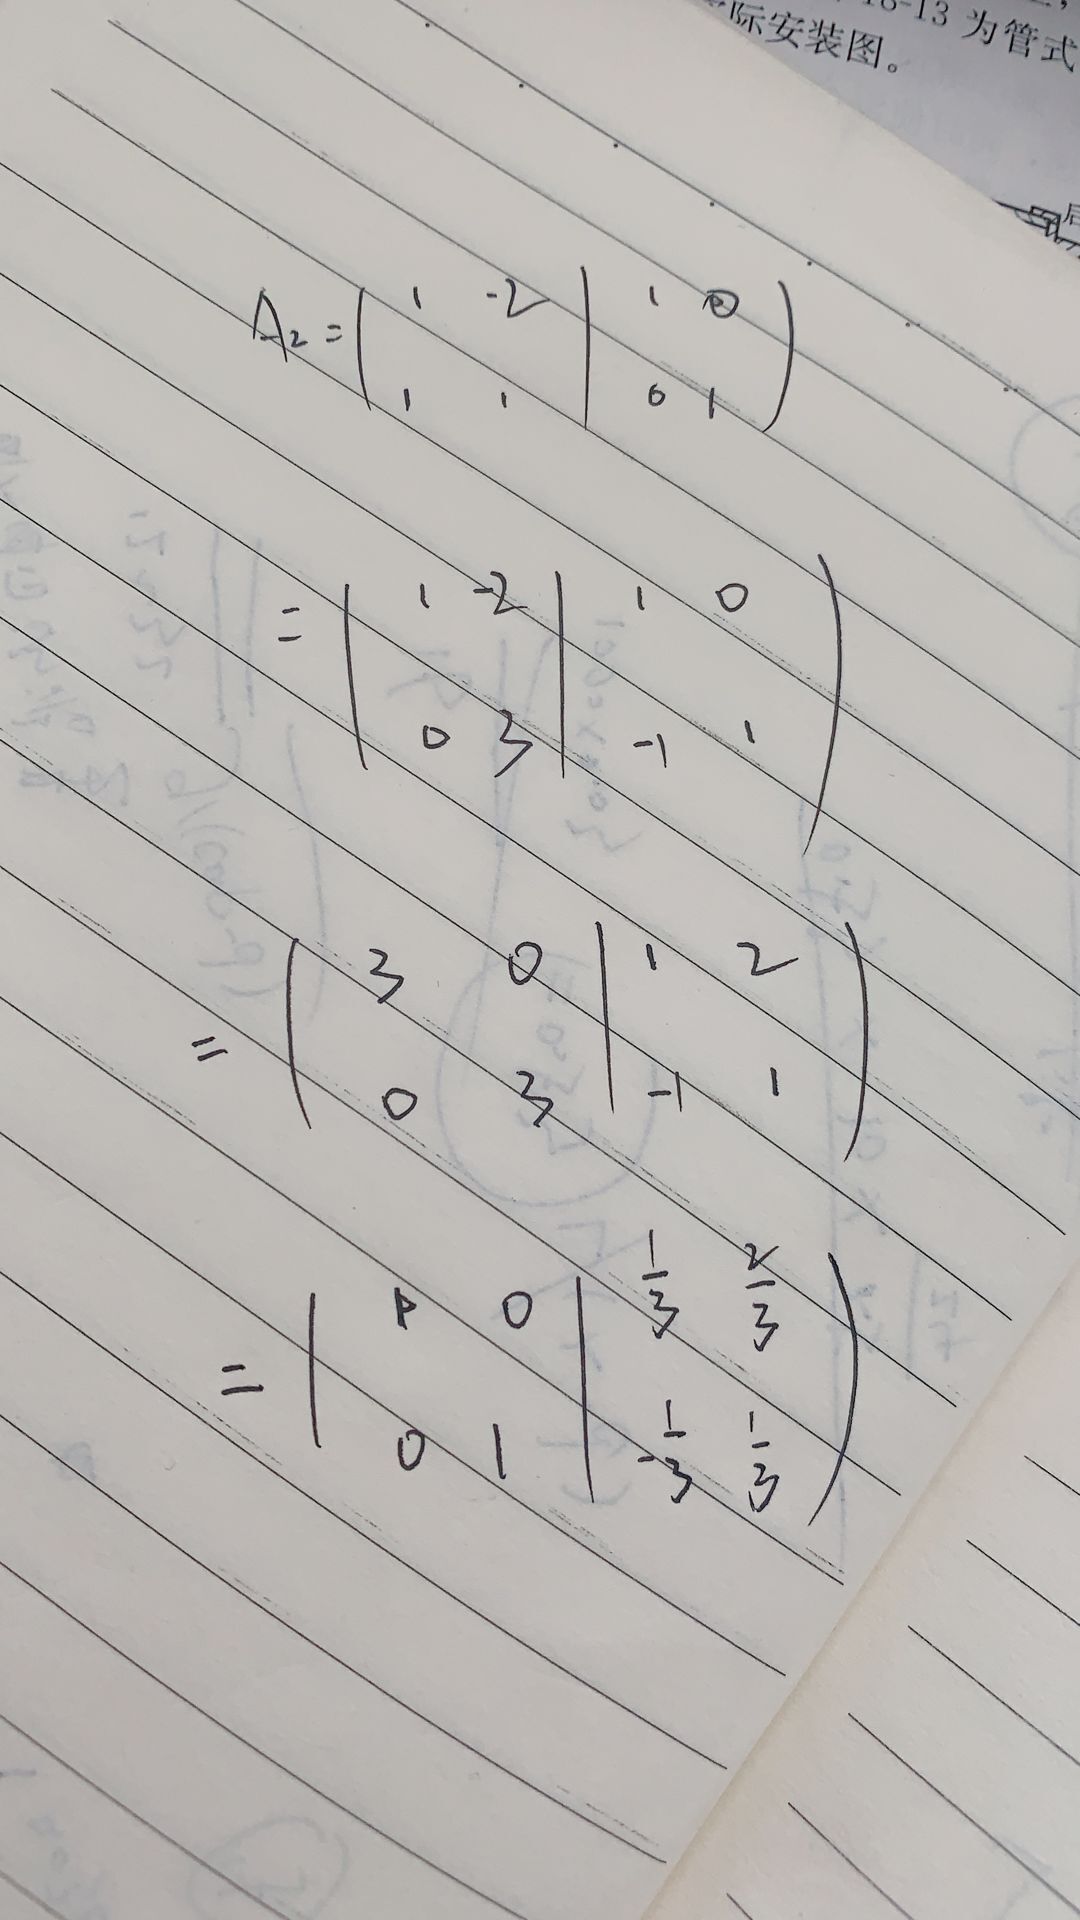 18-13 为管式
际安装图。
A₂ = ( 1 -2 | 1 0 )
( 1 1 | 0 1 )
= ( 1 -2 | 1 0 )
( 0 3 | -1 1 )
= ( 3 0 | 1 2 )
( 0 3 | -1 1 )
= ( 1 0 | 1/3 2/3 )
( 0 1 | -1/3 1/3 )